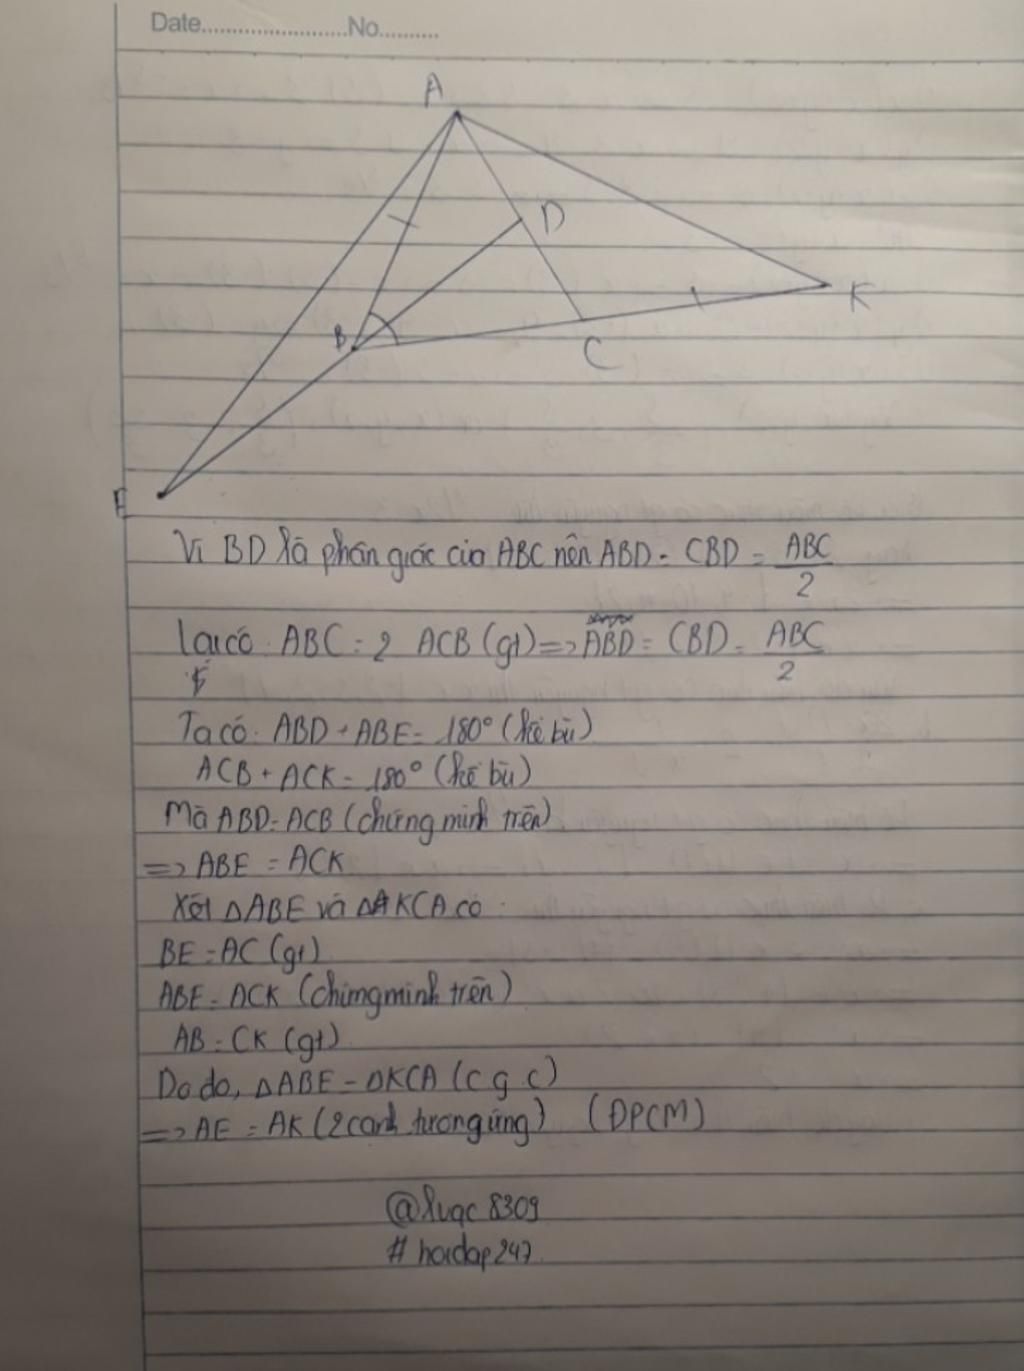 Date........................No..........
A
D
K
B
C
E
Vì BD là phân giác của ABC nên ABD = CBD = ABC/2
Lại có: ABC = 2 ACB (gt) => ABD = CBD = ABC/2
Ta có: ABD + ABE = 180° (kề bù)
ACB + ACK = 180° (kề bù)
Mà ABD = ACB (chứng minh trên)
=> ABE = ACK
Xét ΔABE và ΔKCA có:
BE = AC (gt)
ABE = ACK (chứng minh trên)
AB = CK (gt)
Do do, ΔABE = ΔKCA (c g c)
=> AE = AK (2 cạnh tương ứng) (ĐPCM)
@luqc8309
# hoidap247